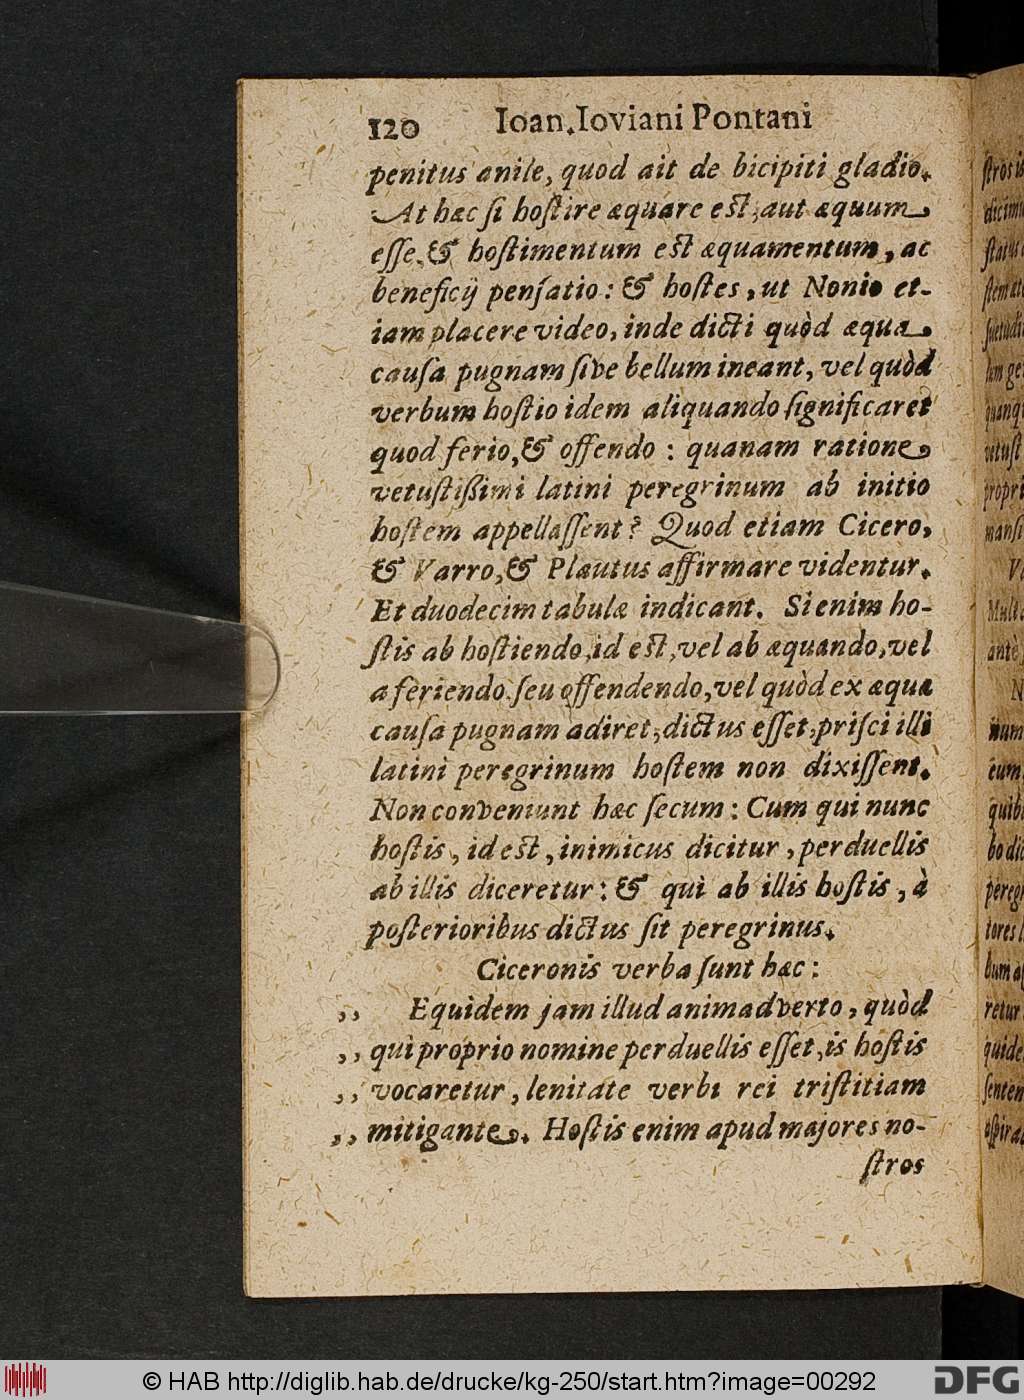 120 Ioan. Ioviani Pontani
penitus anile, quod ait de bicipiti gladio.
At hæc si hostire æquare est, aut æquum
esse, & hostimentum est æquamentum, ac
beneficij pensatio: & hostes, ut Nonio et-
iam placere video, inde dicti quòd æqua
causa pugnam sive bellum ineant, vel quòd
verbum hostio idem aliquando significaret
quod ferio, & offendo: quanam ratione
vetustißimi latini peregrinum ab initio
hostem appellassent? Quod etiam Cicero,
& Varro, & Plautus affirmare videntur.
Et duodecim tabulæ indicant. Si enim ho-
stis ab hostiendo, id est, vel ab æquando, vel
a feriendo seu offendendo, vel quòd ex æqua
causa pugnam adiret, dictus esset, prisci illi
latini peregrinum hostem non dixissent.
Non conveniunt hæc secum: Cum qui nunc
hostis, id est, inimicus dicitur, perduellis
ab illis diceretur: & qui ab illis hostis, à
posterioribus dictus sit peregrinus.
Ciceronis verba sunt hæc:
,, Equidem jam illud animadverto, quòd
,, qui proprio nomine perduellis esset, is hostis
,, vocaretur, lenitate verbi rei tristitiam
,, mitigante. Hostis enim apud majores no-
stros
© HAB http://diglib.hab.de/drucke/kg-250/start.htm?image=00292
DFG